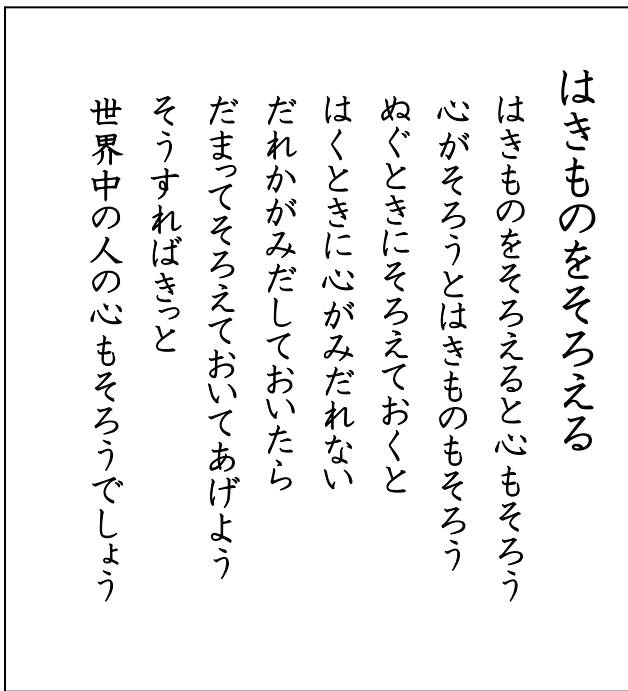 はきものをそろえる
はきものをそろえると心もそろう
心がそろうとはきものもそろう
ぬぐときにそろえておくと
はくときに心がみだれない
だれかがみだしておいたら
だまってそろえておいてあげよう
そうすればきっと
世界中の人の心もそろうでしょう